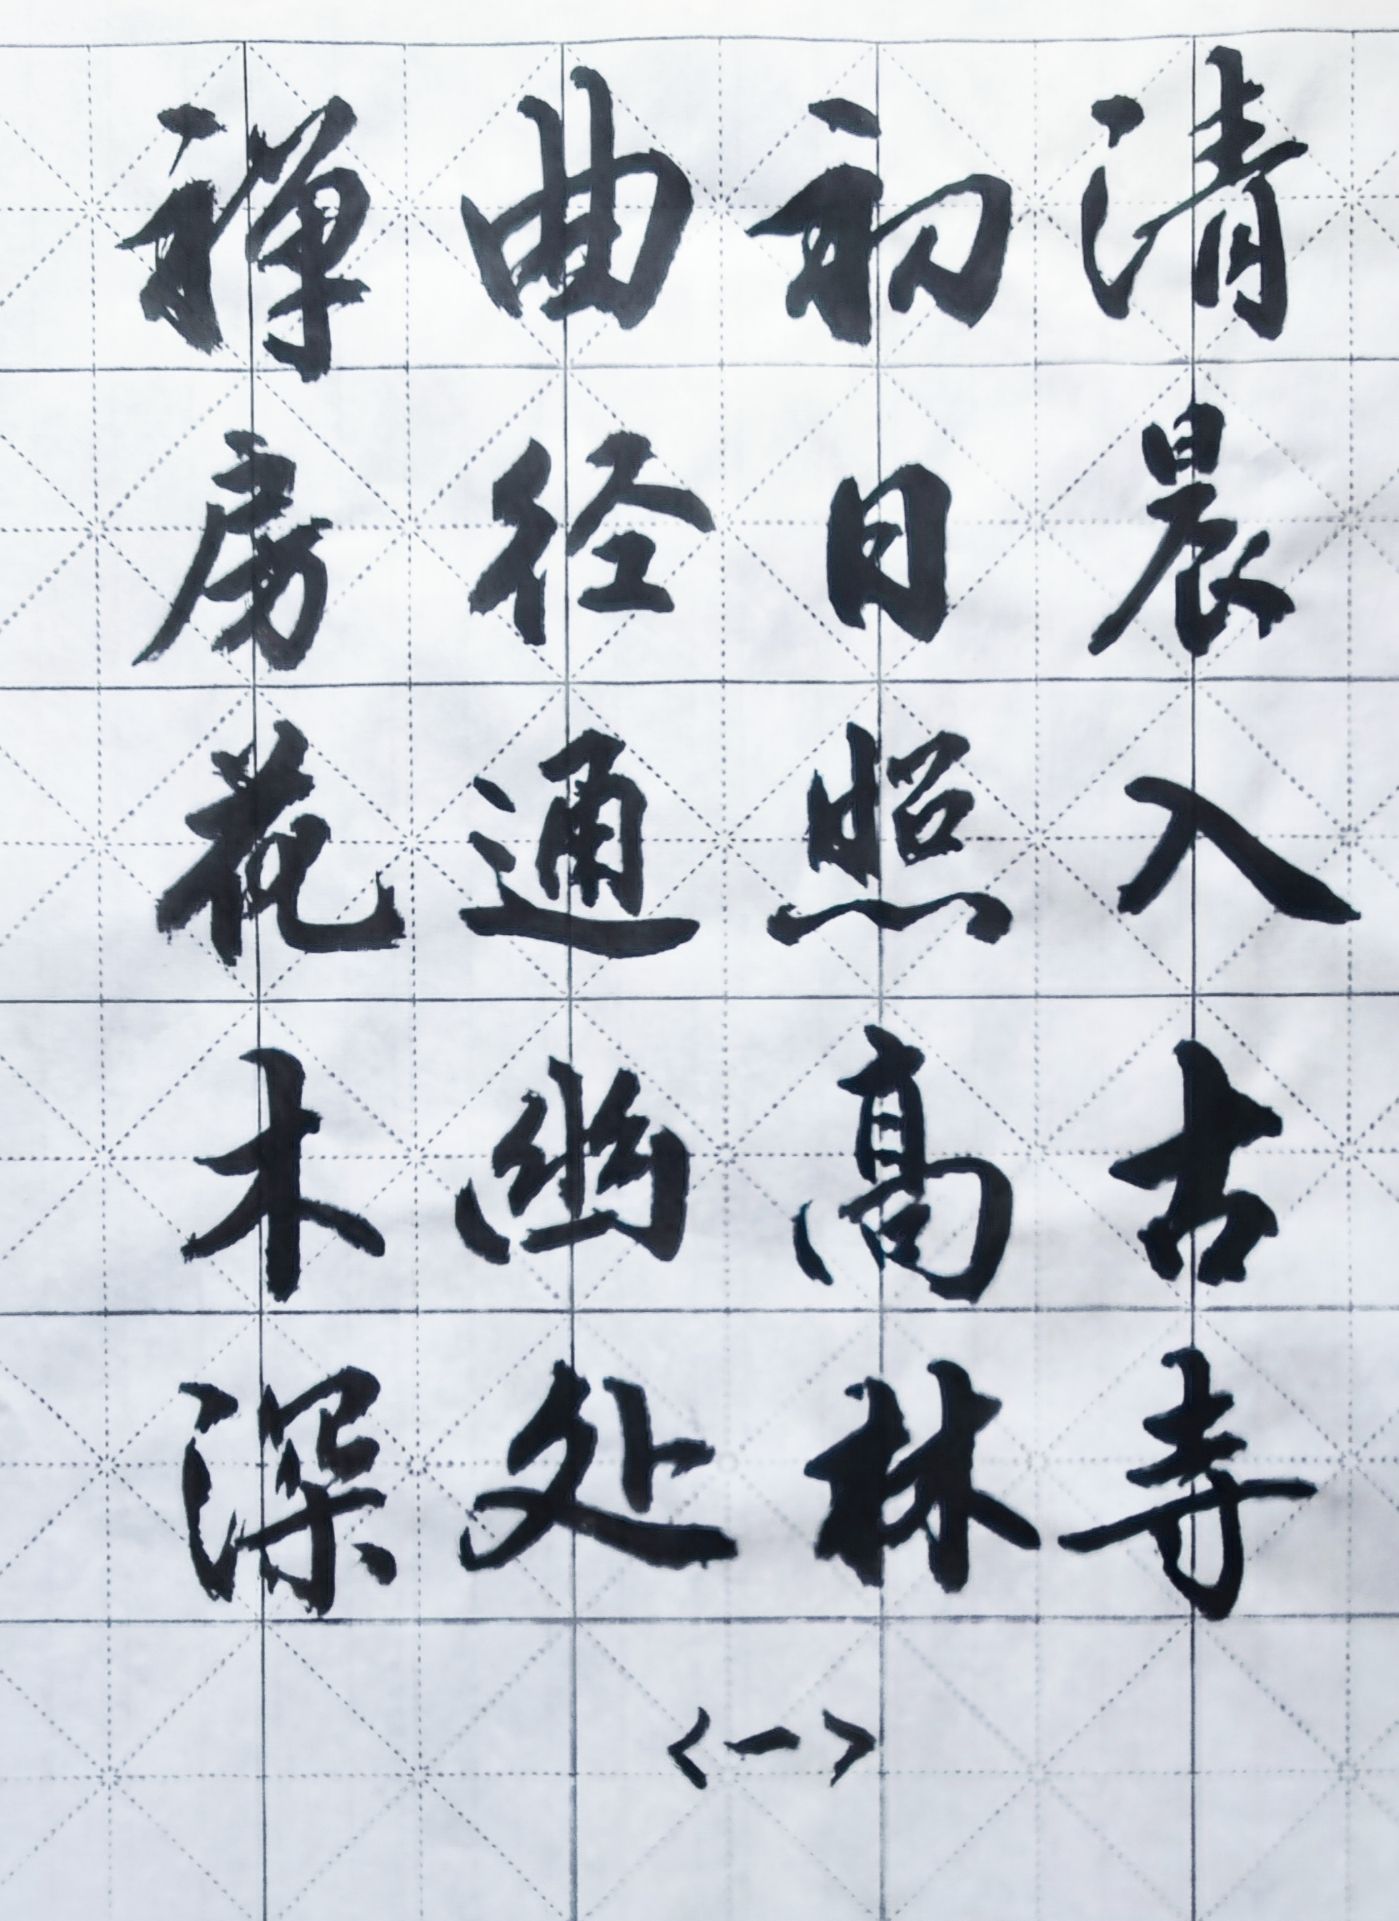 清晨入古寺
初日照高林
曲径通幽处
禅房花木深
<一>